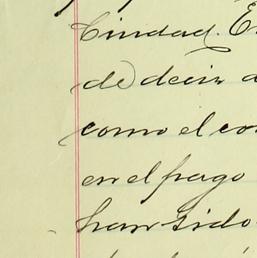 Ciudad. E
de decir a
como el co
en el pago
han sido